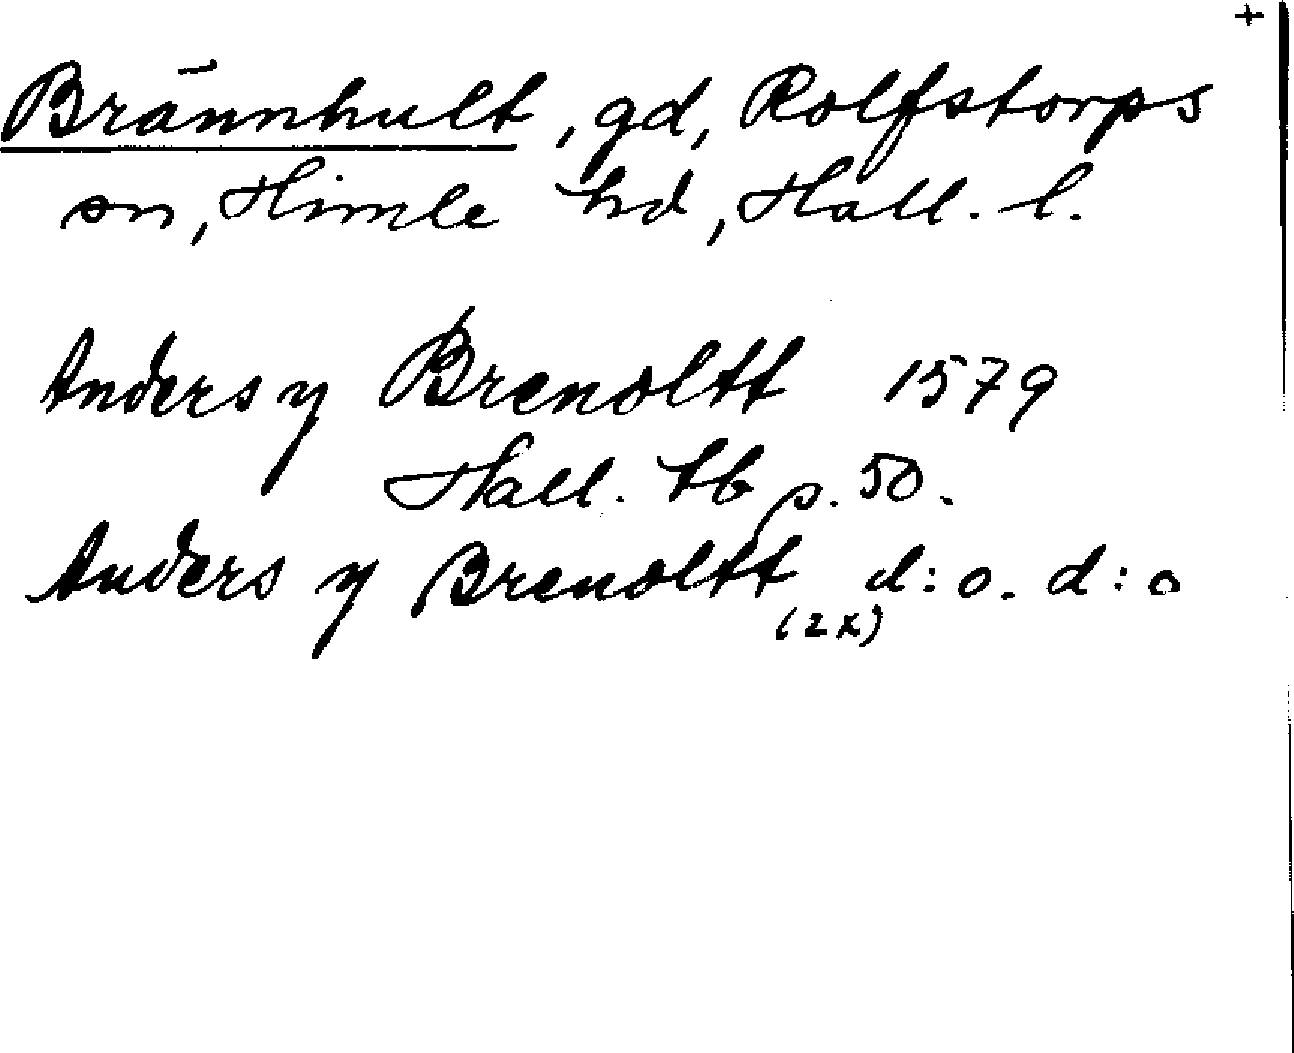 +
Brännhult, gd, Rolfstorps
sn, Himle hd, Hall. l.
Anders y Brenoltt 1579
Hall. tb s. 50.
Anders y Brenoltt d:o. d:o
(2x)